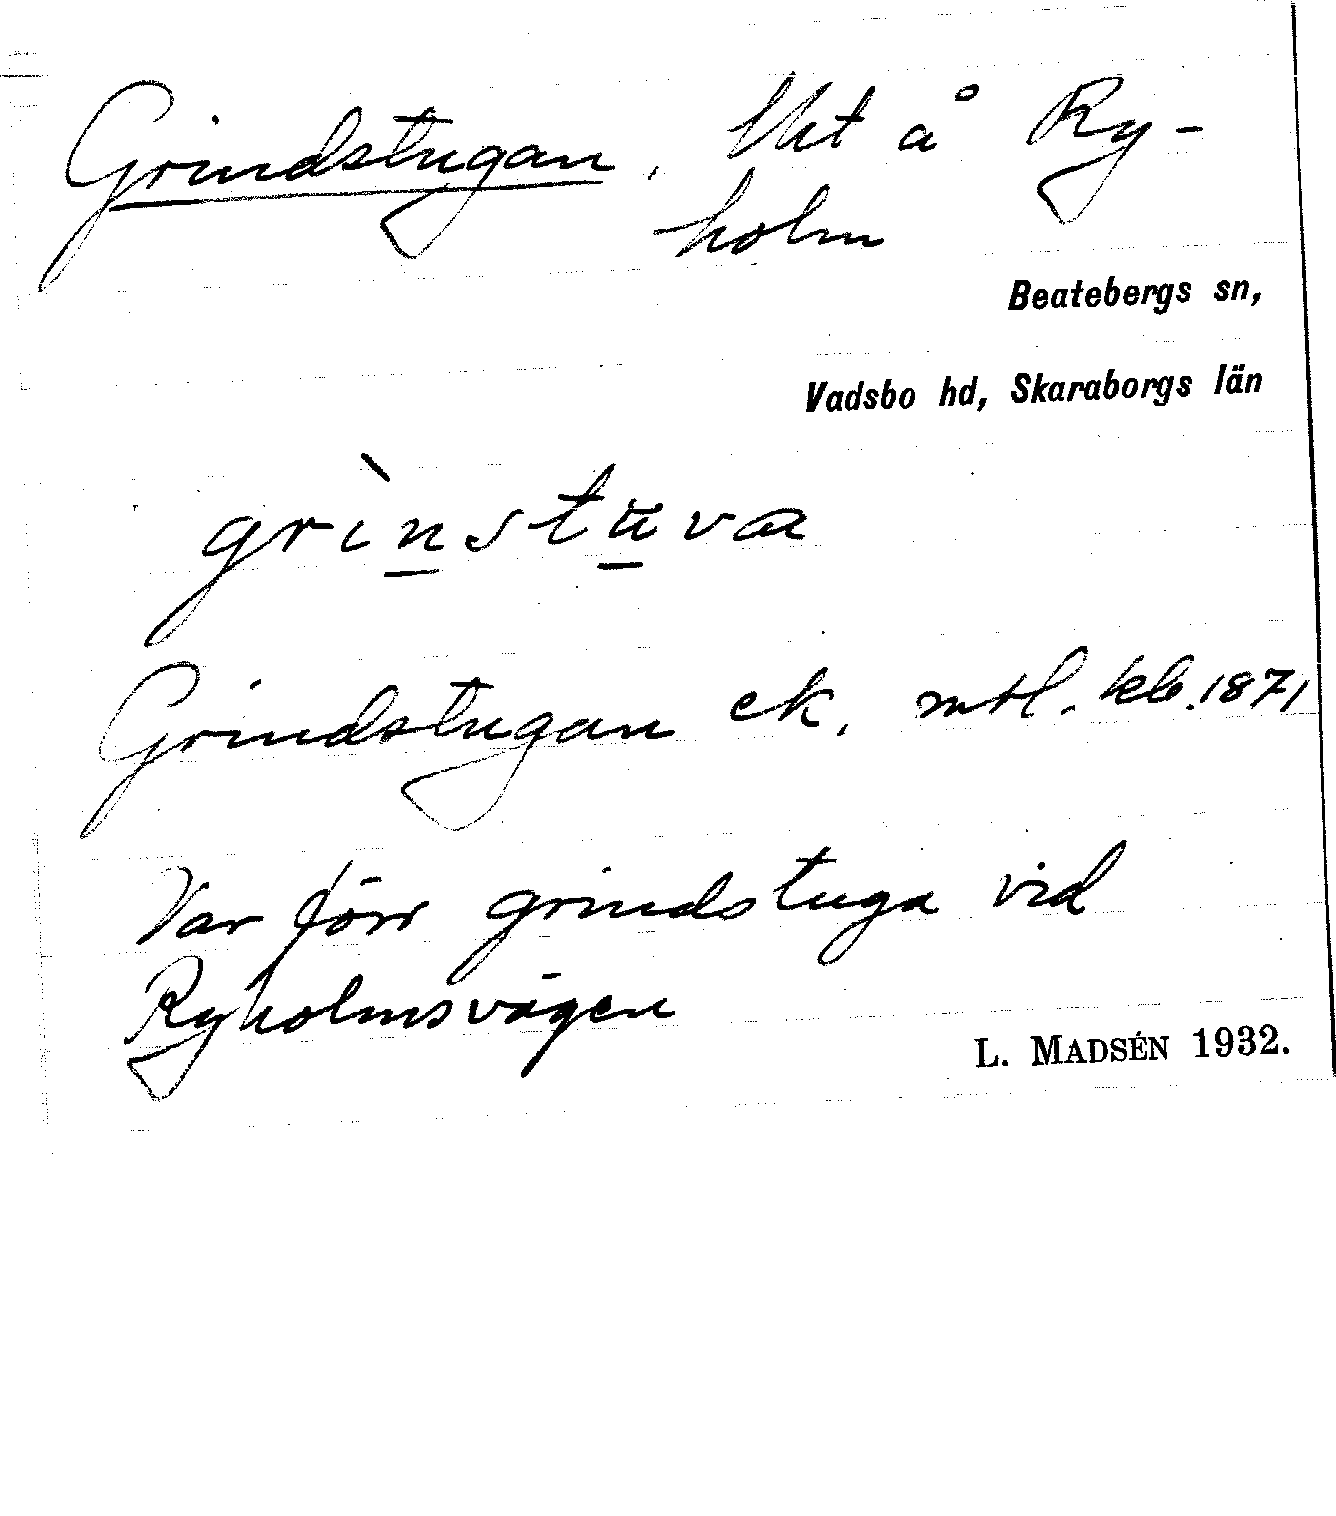 Grindstugan, lht å Ry-
holm
Beatebergs sn,
Vadsbo hd, Skaraborgs län
grìnstuva
Grindstugan ek, mtl. kb. 1871
Var förr grindstuga vid
Ryholmsvägen
L. MADSÉN 1932.